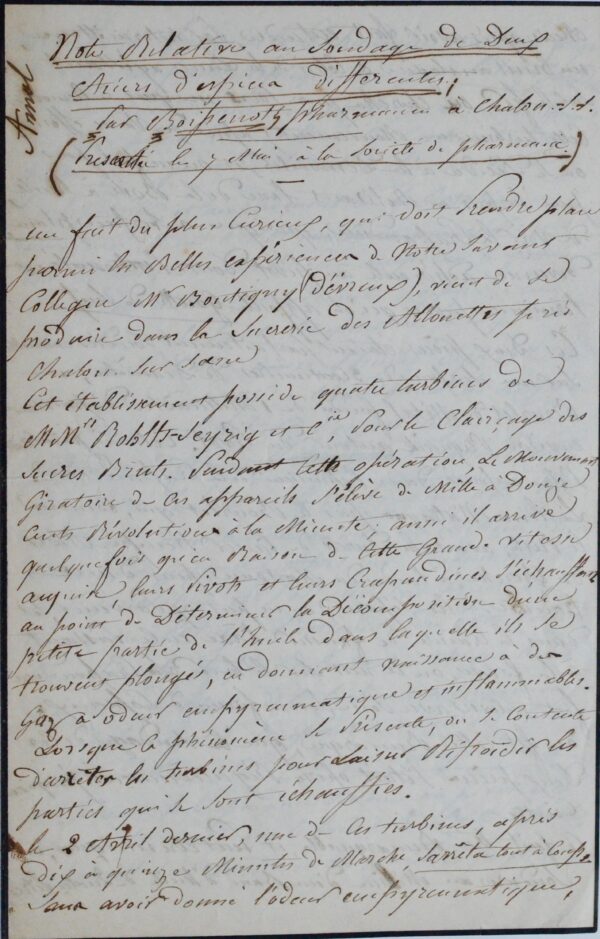 Note Relative au Soudage de Deux
Aciers d'espèces différentes;
Par Boissenot, pharmacien à Chalon. s. s.
(Présentée le 7 Mai à la Société de pharmacie.)
un fait du plus Curieux, qui doit Prendre place
parmi les Belles expériences de Notre Savant
Collègue Mr Boutigny (d'évreux), vient de se
produire dans la Sucrerie des Allouettes près
Chalon sur saone
Cet établissement possède quatre turbines de
MMrs Rohlfs-Seyrig et Cie, Pour le Clairçage des
Sucres Bruts. Pendant cette opération, Le Mouvement
Giratoire de ces appareils s'élève de Mille à Douze
Cents Révolutions à la Minute; aussi il arrive
quelquefois qu'en Raison de Cette Grande vitesse
acquise leurs pivots et leurs Crapaudines s'échauffent
au point de Déterminer la Décomposition d'une
petite partie de l'huile dans laquelle ils se
trouvent plongés, en donnant naissance à des
Gaz à odeur empyreumatique et inflammables.
Lorsque ce phénomène se Présente, on se Contente
d'arrêter les turbines pour Laisser Refroidir les
parties qui se sont échauffées.
le 2 Avril dernier, une de ces turbines, après
dix à quinze Minutes de Marche, s'arrêta tout à Coup,
Sans avoir donné l'odeur empyreumatique,